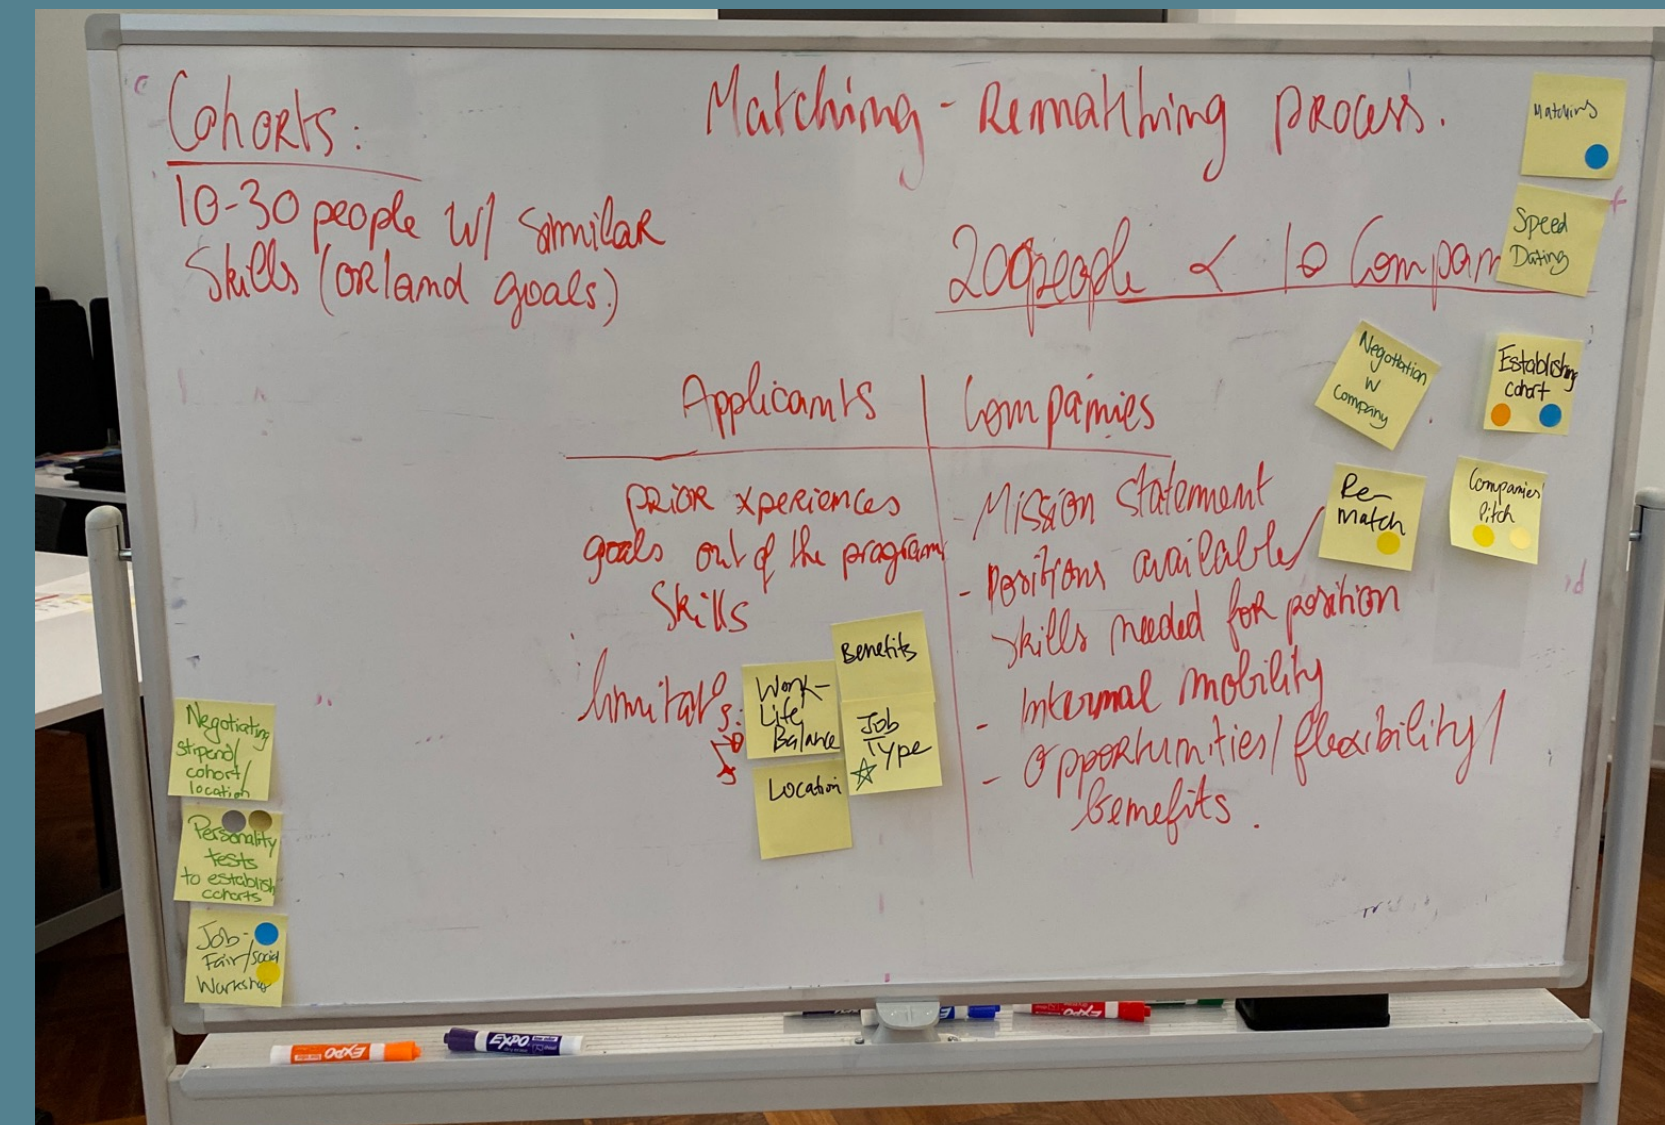 Cohorts:
10-30 people w/ similar
skills (or/and goals.)
Matching - Rematching process.
200people < 10 Compan
Matching
Speed
Dating
Negotiation
w
company
Establishing
cohort
Re-
match
Companies'
Pitch
Applicants
prior xperiences
goals out of the program
skills
Work-
Life
Balance
Benefits
Job
Type
Location
Companies
- Mission statement
- positions available/
skills needed for position
- Internal mobility
- Opportunities/flexibility/
benefits.
Negotiating
stipend/
cohort/
location
Personality
tests
to establish
cohorts
Job-
Fair/social
Workshop
EXPO
EXPO
EXPO